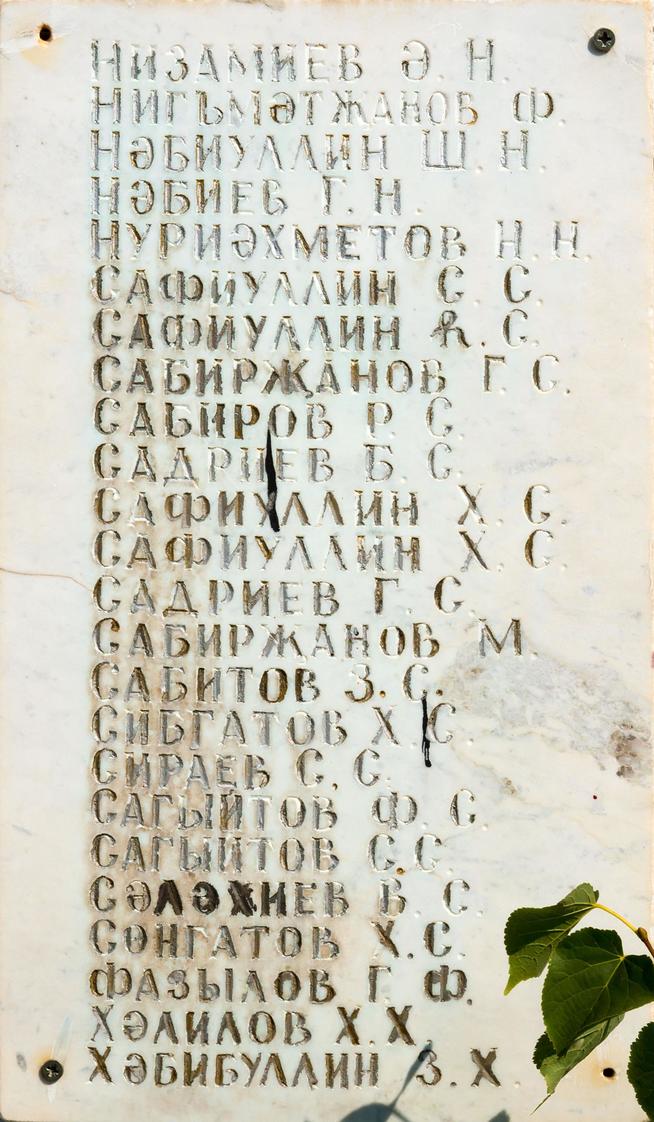 НИЗАМИЕВ Ә. Н.
НИГЪМӘТЖАНОВ Ф.
НӘБИУЛЛИН Ш. Н.
НӘБИЕВ Г. Н.
НУРИӘХМЕТОВ Н. Н.
САФИУЛЛИН С. С.
САФИУЛЛИН Я. С.
САБИРЖАНОВ Г. С.
САБИРОВ Р. С.
САДРИЕВ Б. С.
САФИУЛЛИН Х. С.
САФИУЛЛИН Х. С.
САДРИЕВ Г. С.
САБИРЖАНОВ М.
САБИТОВ З. С.
СИБГАТОВ Х. С.
СИРАЕВ С. С.
САГЫЙТОВ Ф. С.
САГЫЙТОВ С. С.
СӘЛӘХИЕВ В. С.
СӨНГАТОВ Х. С.
ФАЗЫЛОВ Г. Ф.
ХӘЛИЛОВ Х. Х.
ХӘБИБУЛЛИН З. Х.